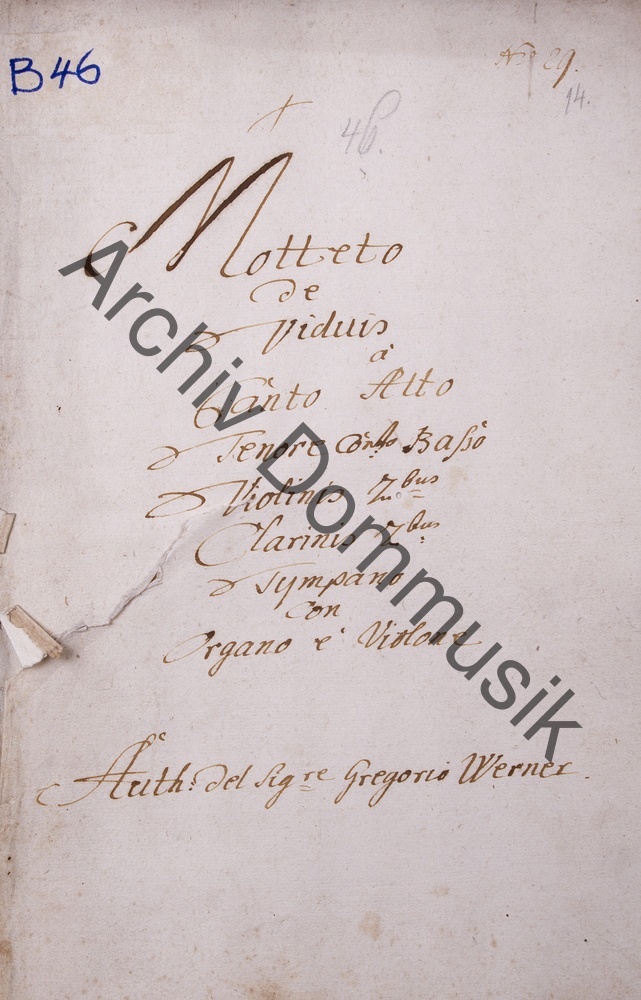 B 46
Nro 29.
14.
46.
Motteto
de
Viduis
à
Canto Alto
Tenore Conto Basso
Violinis 2bus
Clarinis 2bus
Tympano
con
Organo è Violone
Auth: del Sigre Gregorio Werner.
Archiv Dommusik